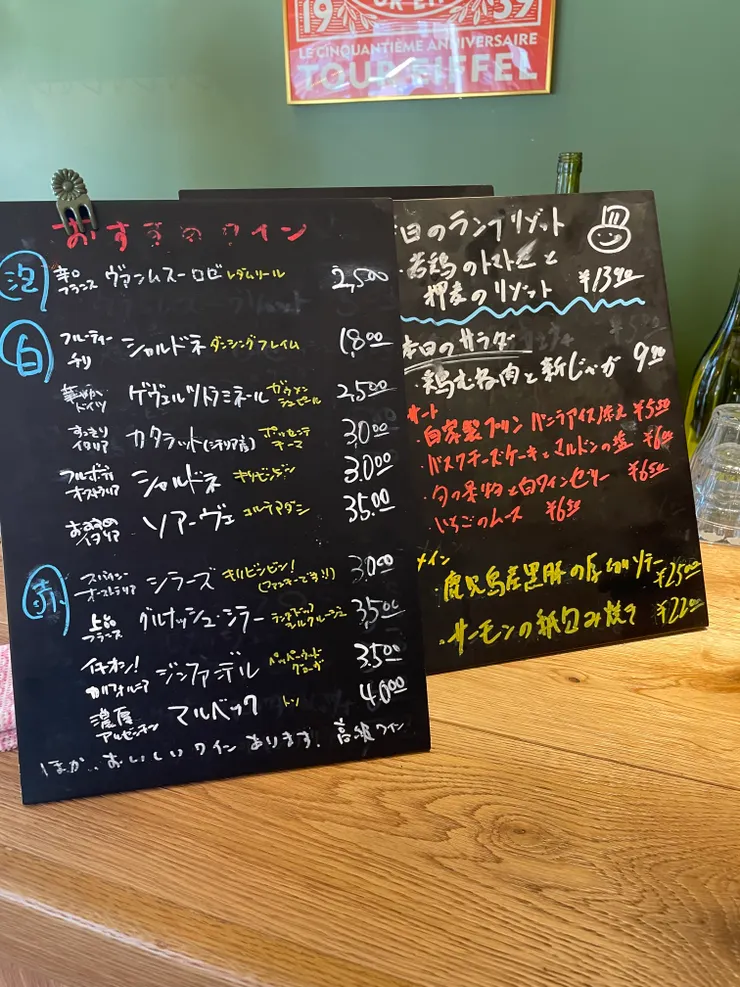 19 59
LE CINQUANTIÈME ANNIVERSAIRE
TOUR EIFFEL
おすすめワイン
泡
辛口 フランス ヴァンムスーロゼ レダムリール 2,500
白
フルーティー チリ シャルドネ ダンシングフレイム 1,800
華やか ドイツ ゲヴェルツトラミネール 2,500
すっきり イタリア カタラット(シチリア産) 3,000
フルボディ オーストラリア シャルドネ キリビンビン 3,000
おすすめ イタリア ソアーヴェ コルテアダミ 35.00
赤
スパイシー オーストラリア シラーズ キリビンビン! (ファンキーです!!) 3,000
上品 フランス グルナッシュ・シラー 3,500
イチオシ! カリフォルニア ジンファンデル ペッパーウッドグローヴ 3,500
濃厚 アルゼンチン マルベック トソ 4,000
ほか、おいしいワインあります。高級ワイン
日のランチリゾット
・若鶏のトマト煮と
押麦のリゾット ¥1300
本日のサラダ
・鶏むね肉と新じゃが 900
・自家製プリン バニラアイス添え ¥550
・バスクチーズケーキ マルドンの塩 ¥600
・旬の果物と白ワインゼリー ¥650
・いちごのムース ¥650
メイン
・鹿児島産黒豚の厚切りソテー ¥2500
・サーモンの紙包み焼き ¥2200